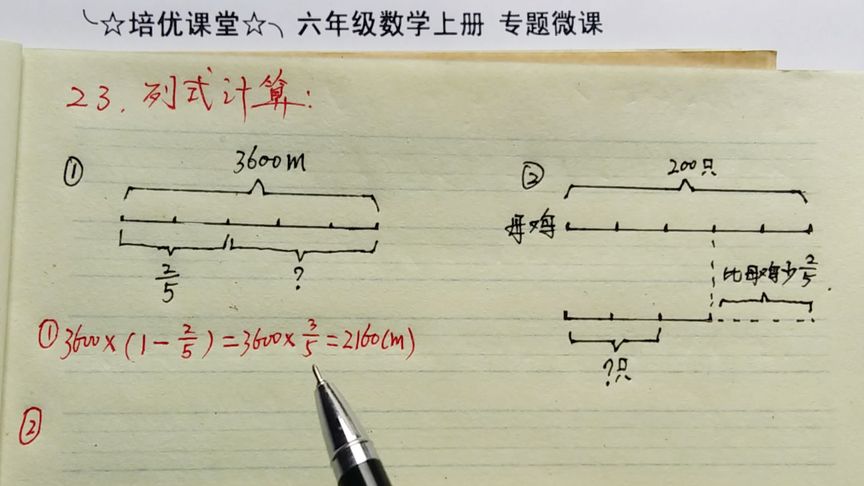 ☆培优课堂☆ 六年级数学上册 专题微课
23. 列式计算:
① 3600m
2/5 ?
② 200只
母鸡
比母鸡少2/5
?只
① 3600×(1-2/5)=3600×3/5=2160(m)
②